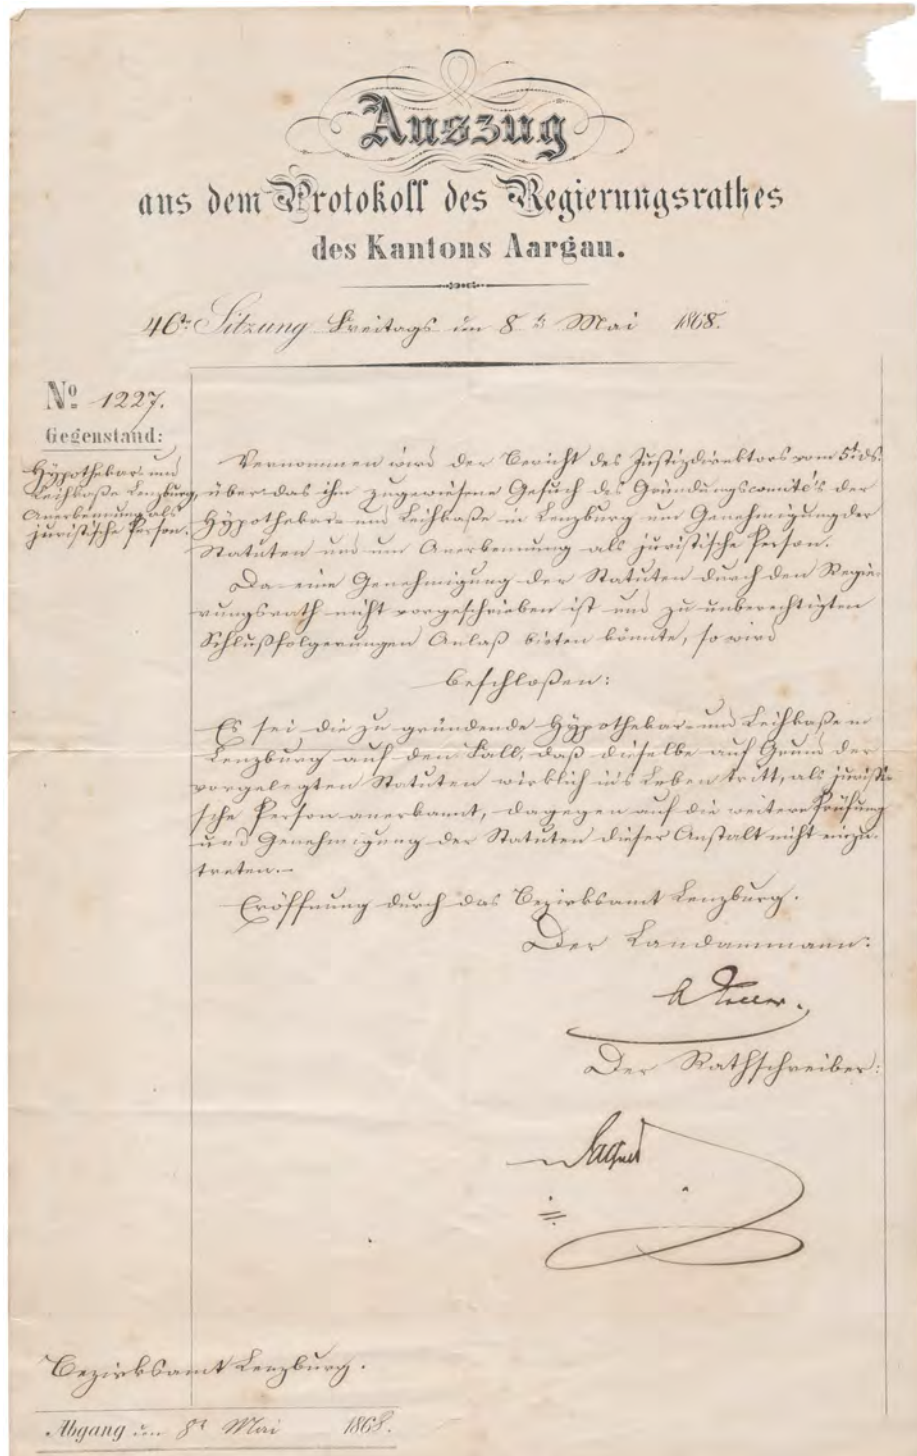 Auszug
aus dem Protokoll des Regierungsrathes
des Kantons Aargau.
46te Sitzung Freitags den 8t Mai 1868.
No 1227.
Gegenstand:
Hypothekar- und
Leihkaße Lenzburg,
Anerkennung als
juristische Person.
Vernommen wird der Bericht des Justizdirektors vom 5t ds.
über das ihm zugewiesene Gesuch des Gründungscomité's der
Hypothekar- und Leihkaße in Lenzburg um Genehmigung der
Statuten und um Anerkennung als juristische Person.
Da eine Genehmigung der Statuten durch den Regie-
rungsrath nicht vorgeschrieben ist und zu unberechtigten
Schlußfolgerungen Anlaß bieten könnte, so wird
beschloßen:
Es sei die zu gründende Hypothekar- und Leihkaße in
Lenzburg auf den Fall, daß dieselbe auf Grund der
vorgelegten Statuten wirklich in's Leben tritt, als juristi-
sche Person anerkannt, dagegen auf die weitere Prüfung
und Genehmigung der Statuten dieser Anstalt nicht einzu-
treten.-
Eröffnung durch das Bezirksamt Lenzburg.
Der Landammann:
Der Rathschreiber:
Bezirksamt Lenzburg.
Abgang den 8t Mai 1868.